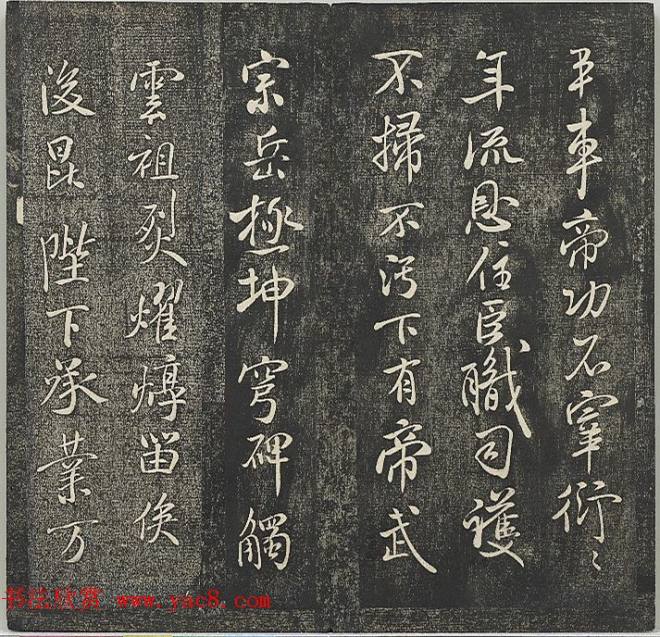 平車帝功石宰衍〻
年流恩住臣職司護
不掃不污下有帝武
宗岳極坤穹碑觸
雲祖烈燿焞留俟
後昆陛下承業万
书法欣赏 www.yac8.com